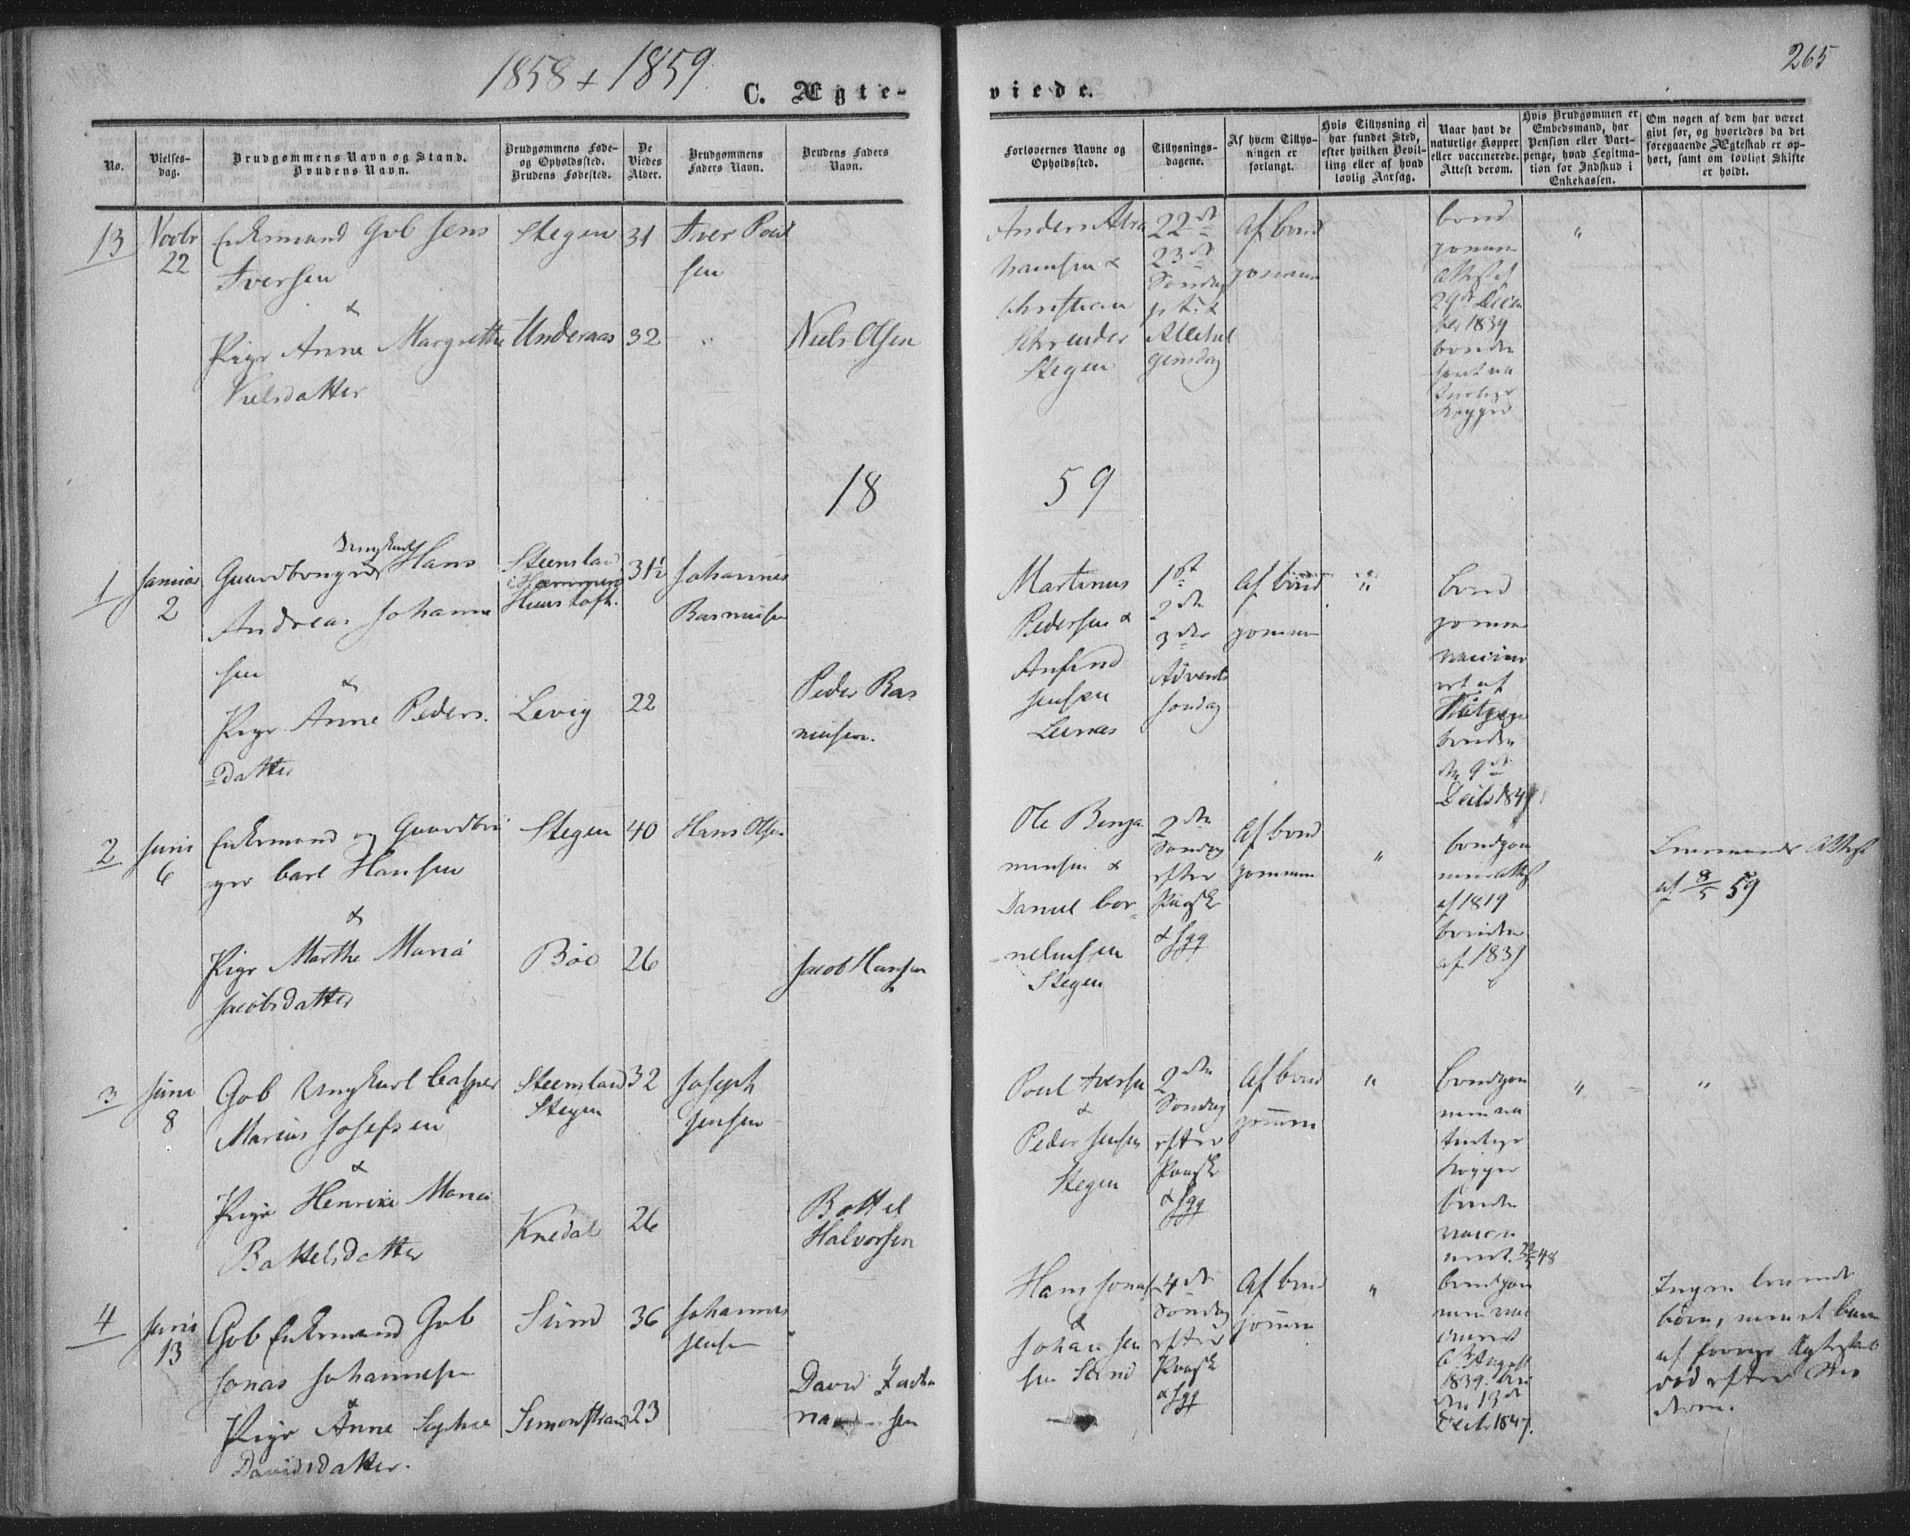 1858 + 1859
265
C. Ægte-
viede.
No.
Vielses-
dag.
Brudgommens Navn og Stand.
Brudens Navn.
Brudgommens Føde-
og Opholdssted.
Brudens Fødested.
De
Viedes
Alder.
Brudgommens
Faders Navn.
Brudens Faders
Navn.
Forlovernes Navne og
Opholdssted.
Tillysnings-
dagene.
Af hvem Tillys-
ningen er
forlangt.
Hvis Tillysning ei
har fundet Sted,
efter hvilken Bevil-
ling eller af hvad
lovlig Aarsag.
Naar havt de
naturlige Kopper
eller vaccinerede.
Attest derom.
Hvis Brudgommen er
Embedsmand, har
Pension eller Vart-
penge, hvad Legitima-
tion for Indskud i
Enkekassen.
Om nogen af dem har været
givt før, og hvorledes da det
foregaaende Ægteskab er op-
hørt, samt om lovligt Skifte
er holdt.
13
Novbr
22
Enkemand Gob Jens
Iversen
&
Pige Anne Margrethe
Nielsdatter
Stegen
Underaas
31
32
Iver Poul
sen
"
Niels Olsen
Anders Abra
hamsen &
Christian
Schrøder
Stegen
22de
23de
Søndag
p t. &
Allehel
gensdag
Af brud
gommen
brud
gommen
Attest af
29de Decem
ber 1839
bruden
havt na
turlige
Kopper
"
18
59
1
Januar
2
Ungkarl
Gaardbruger Hans
Andreas Johanne
sen
&
Pige Anne Peders
datter
Steensland
i Hammerø
Huus Løsk.
Levig
31½
22
Johannes
Rasmusen
Peder Ras
musen.
Martinus
Pedersen &
Anfind
Jensen
Leinæs
1ste
2den
3die
Advents
søndag
Af brud
gommen
"
brud
gommen
vacciner
ert af
bruden
den 9de
Decbr 184
2
Juni
6
Enkemand og Gaardbru
ger Carl Hansen
&
Pige Marthe Maria
Jacobsdatter
Stegen
Bøe
40
26
Hans Olsen
Jacob Hansen
Ole Benja
minsen &
Daniel Cor
neliussen
Stegen
2den
Søndag
efter
Paaske
& fgg
Af brud
gommen
"
brudgom
men Attest
af 1819
bruden
af 1839
Lensmands Attest
af 8/5 59
3
Juni
8
Gob Ungkarl Casper
Marius Josefsen
&
Pige Henrike Maria
Battelsdatter
Steensland
Stegen
Knedal
32
26
Joseph
Jensen
Battel
Halvorsen
Poul Iversen
&
Peder Jensen
Stegen
2den
Søndag
efter
Paaske
& fgg
Af brud
gommen
"
brudgom
men na
turlige
Kopper
bruden
vacci
"
"
4
Juni
13
Gob Enkemand Gob
Jonas Johannesen
&
Pige Anne Sophie
Davidsdatter.
Sund
Simonstrand
36
23
Johannes
Jensen
"
David Zacha
riassen
Hans Jonas
&
Johan Jen
sen Sund
4de
Søndag
efter
Paaske
& fgg
Af brud
gommen
"
brudgom
men vac
cineret
August
1839
den 13de
Decbr. 1847.
Ingen levende
børn, men et barn
af forrige Ægteskab
død efter Mo
deren.